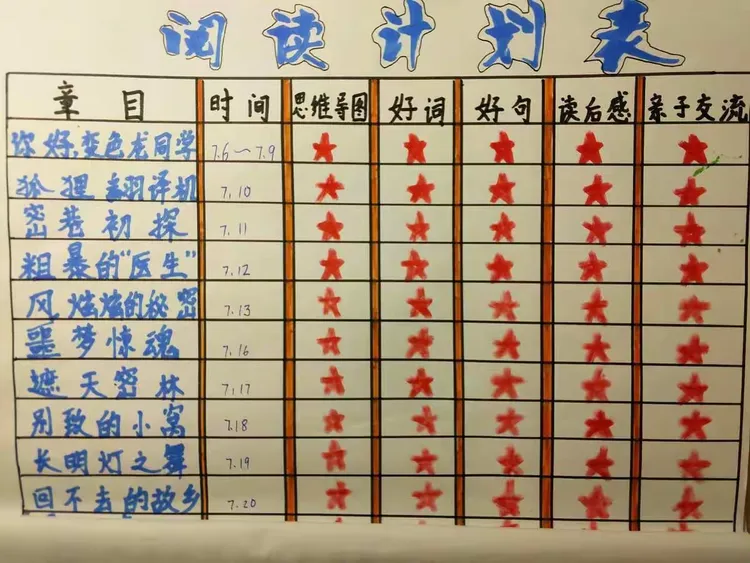 阅读计划表
章目 时间 思维导图 好词 好句 读后感 亲子交流
你好,变色龙同学 7.6~7.9
狐狸翻译机 7.10
密巷初探 7.11
粗暴的“医生” 7.12
风炫炫的秘密 7.13
噩梦惊魂 7.16
遮天密林 7.17
别致的小窝 7.18
长明灯之舞 7.19
回不去的故乡 7.20